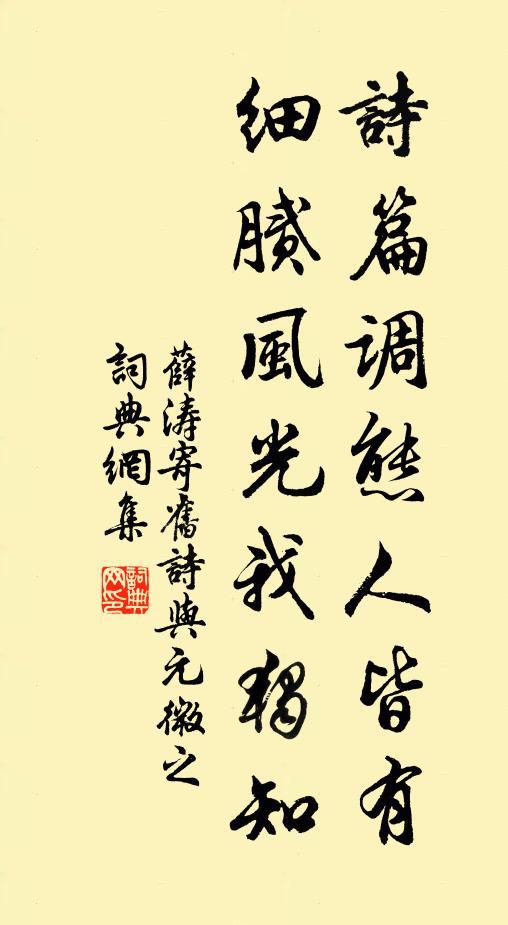 詩篇調態人皆有
細膩風光我獨知
薛濤寄舊詩與元微之
詞典網集
詞典
网印